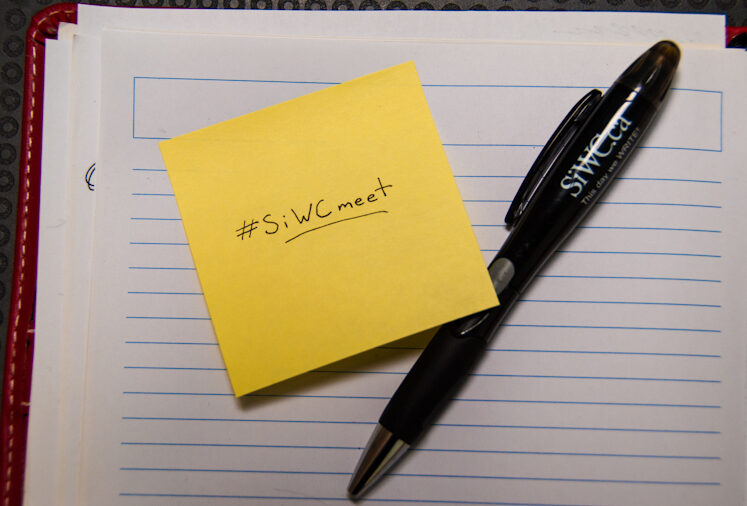 #SiWCmeet
SiWC.ca
This day we WRITE!